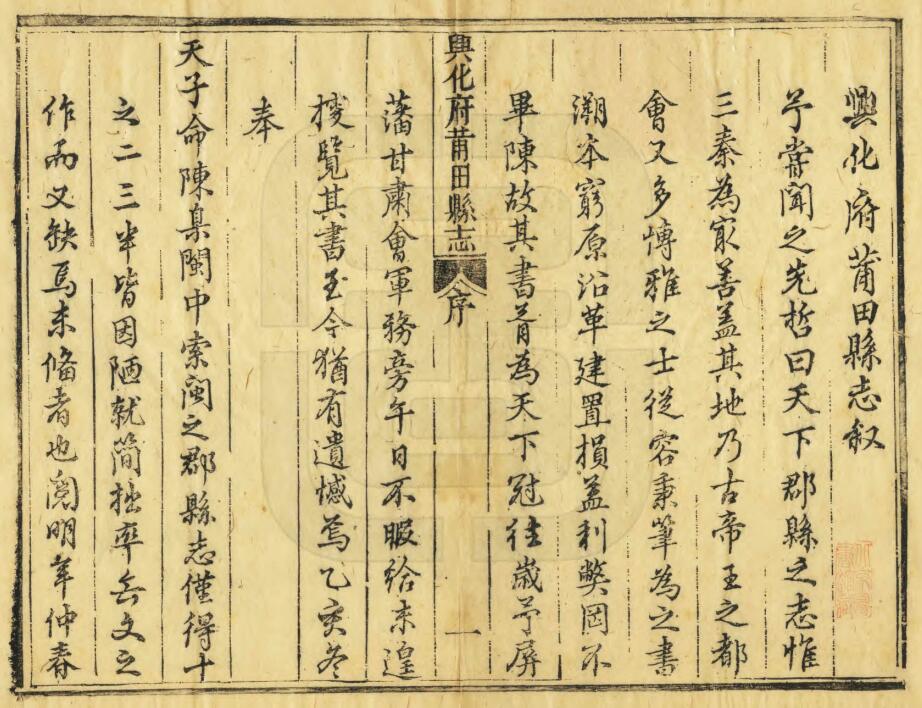 興化府莆田縣志叙
予嘗聞之先哲曰天下郡縣之志惟
三秦為最善盖其地乃古帝王之都
會又多博雅之士從容秉筆為之書
溯夲窮原沿革建置損益利獘罔不
畢陳故其書肻為天下冠往歲予屏
興化府莆田縣志
序
一
藩甘肅會軍務旁午日不暇給未遑
披覽其書至今猶有遺憾焉乙亥冬
奉
天子命陳臬閩中索閩之郡縣志僅得十
之二三半皆因陋就簡拙率無文之
作而又缺焉未脩者也閱明年仲春